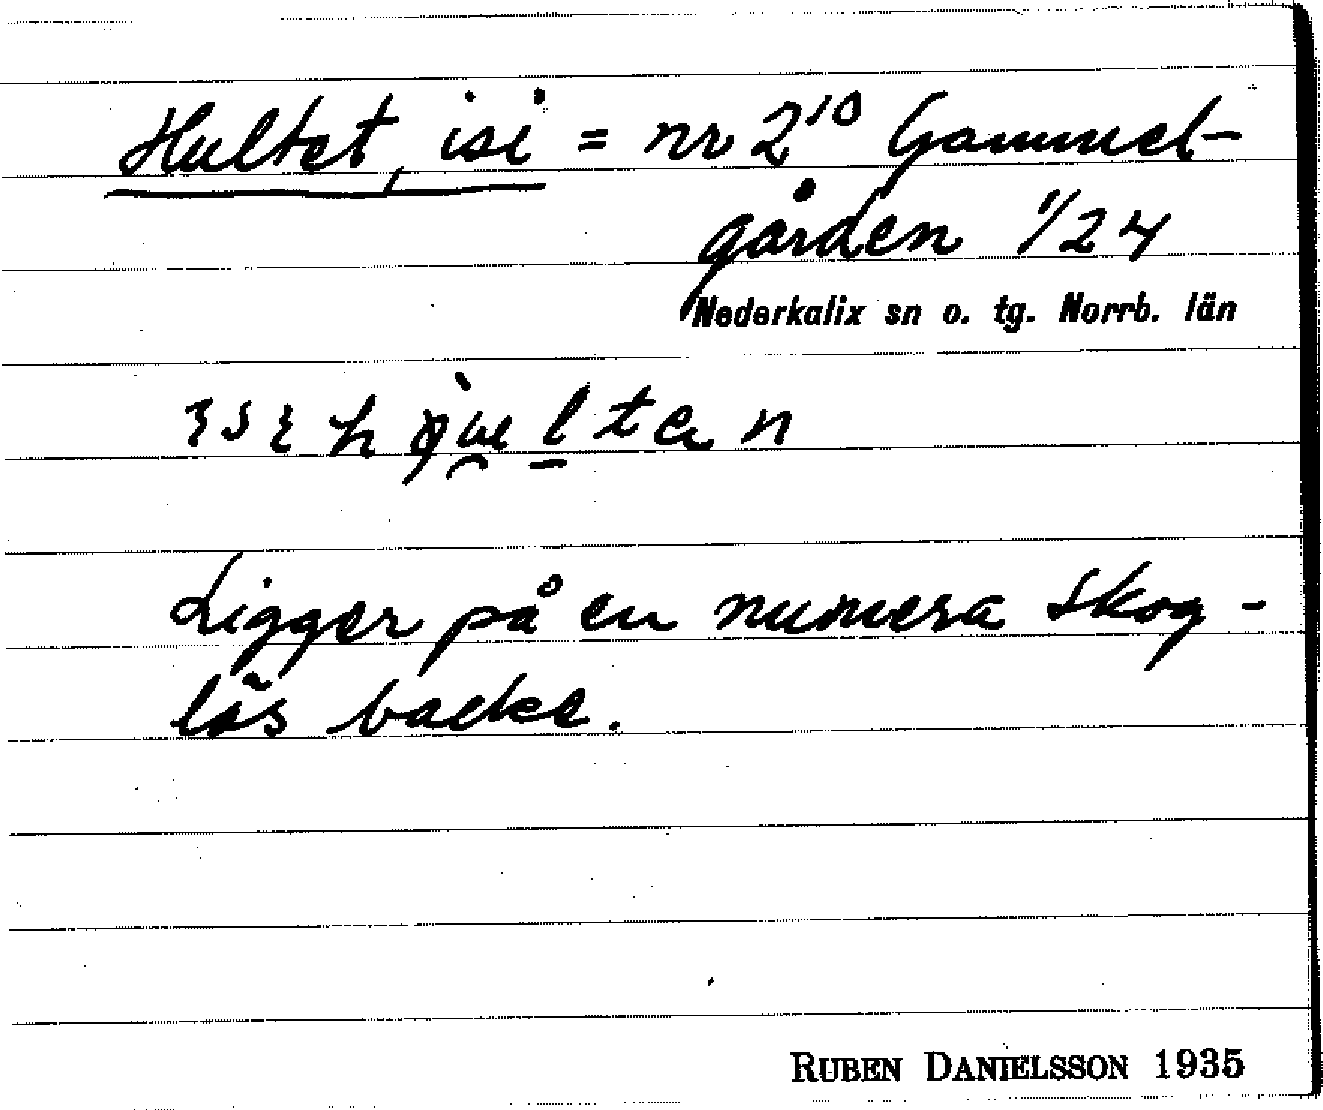 Hultet, isi = nr 2¹⁰ Gammel-
gården 1/24
Nederkalix sn o. tg. Norrb. län
Ligger på en numera skog-
lös backe.
RUBEN DANIELSSON 1935